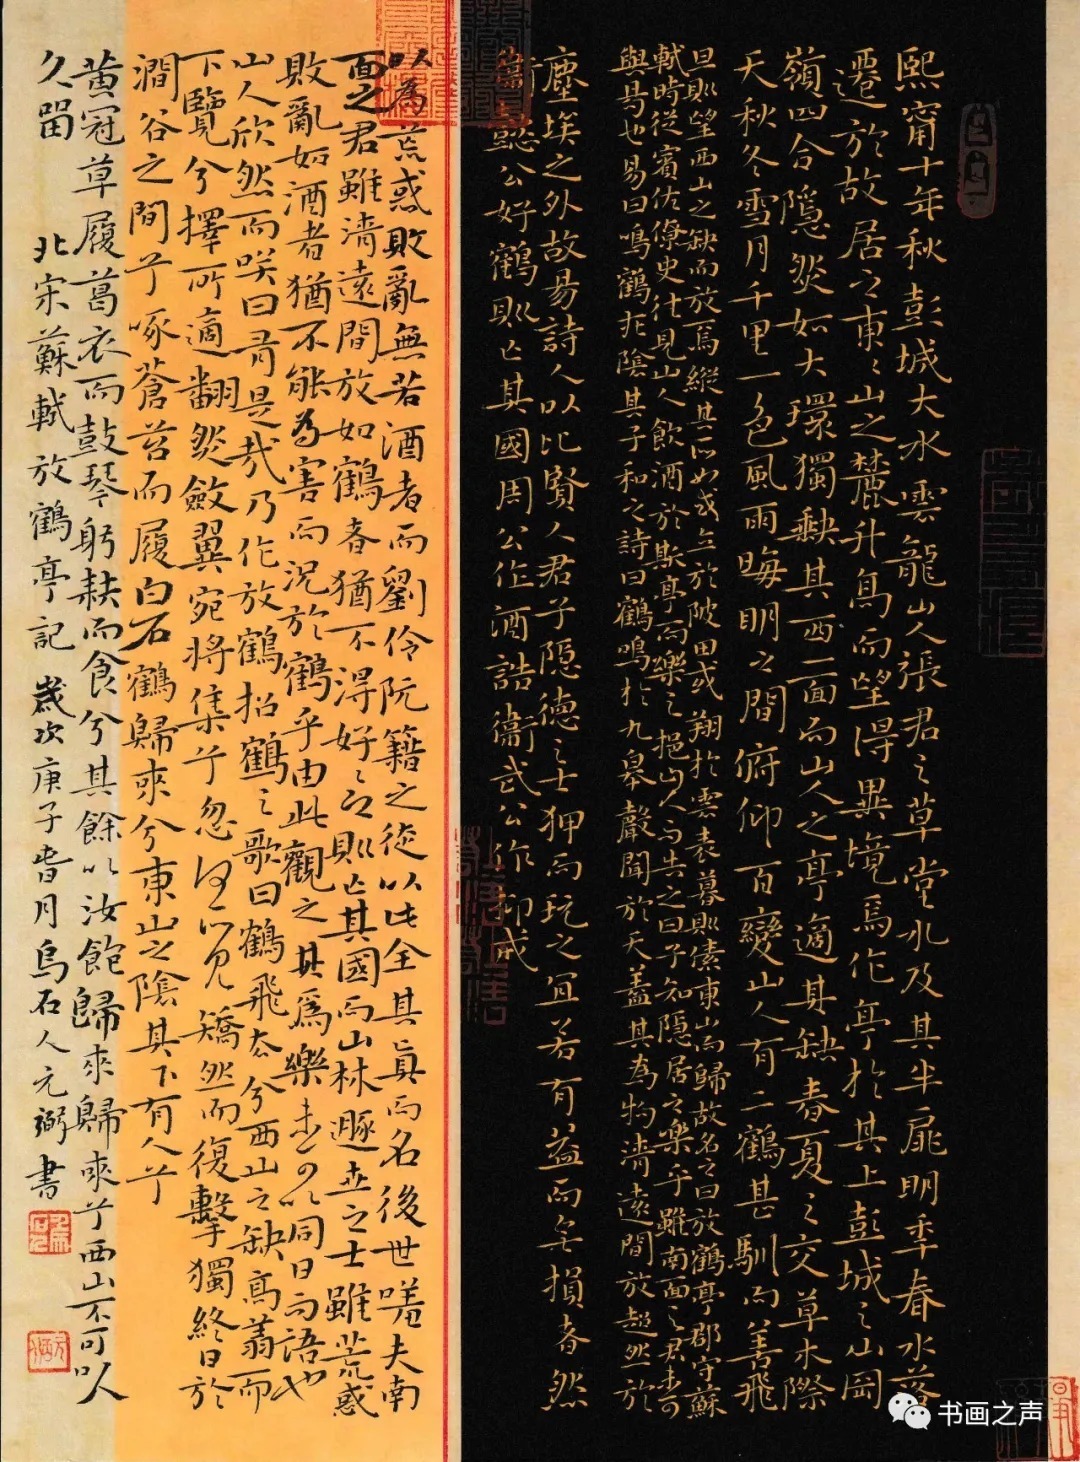 熙甯十年秋彭城大水雲龍山人張君之草堂水及其半扉明年春水落
遷於故居之東〻山之麓升高而望得異境焉作亭於其上彭城之山岡
嶺四合隱然如大環獨缺其西一面而山人之亭適其缺春夏之交草木際
天秋冬雪月千里一色風雨晦明之間俯仰百變山人有二鶴甚馴而善飛
旦則望西山之缺而放焉縱其所如或立於陂田或翔於雲表暮則傃東山而歸故名之曰放鶴亭郡守蘇
軾時從賓佐僚吏往見山人飲酒於斯亭而樂之挹山人而告之曰子知隱居之樂乎雖南面之君未可
與易也易曰鳴鶴在陰其子和之詩曰鶴鳴於九皋聲聞於天蓋其為物清遠閒放超然於
塵埃之外故易詩人以比賢人君子隱德之士狎而玩之宜若有益而無損者然
衛懿公好鶴則亡其國周公作酒誥衛武公作抑戒
以為荒惑敗亂無若酒者而劉伶阮籍之徒以此全其真而名後世嗟夫南
面之君雖清遠閒放如鶴者猶不得好〻之則亡其國而山林遯世之士雖荒惑
敗亂如酒者猶不能為害而況於鶴乎由此觀之其為樂未可以同日而語也
山人欣然而笑曰有是哉乃作放鶴招鶴之歌曰鶴飛去兮西山之缺高翥而
下覽兮擇所適翻然斂翼宛將集兮忽何所見矯然而復擊獨終日於
澗谷之間兮啄蒼苔而履白石鶴歸來兮東山之陰其下有人兮
黃冠草履葛衣而鼓琴躬耕而食兮其餘以汝飽歸來歸來兮西山不可以
久留 北宋蘇軾放鶴亭記 歲次庚子
烏石人元弼書
书画之声